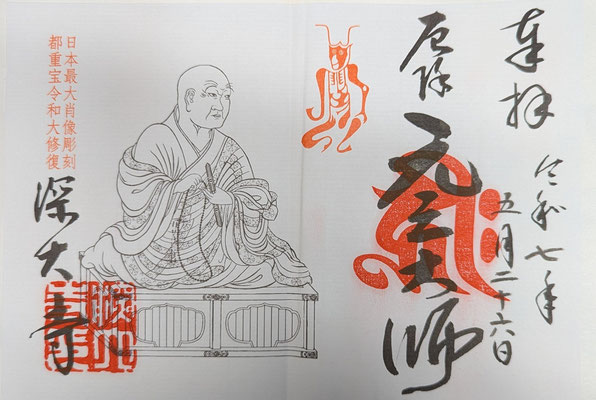 奉拝
令和七年
五月二十六日
厄除
元三大師
日本最大肖像彫刻
都重宝令和大修復
深大寺